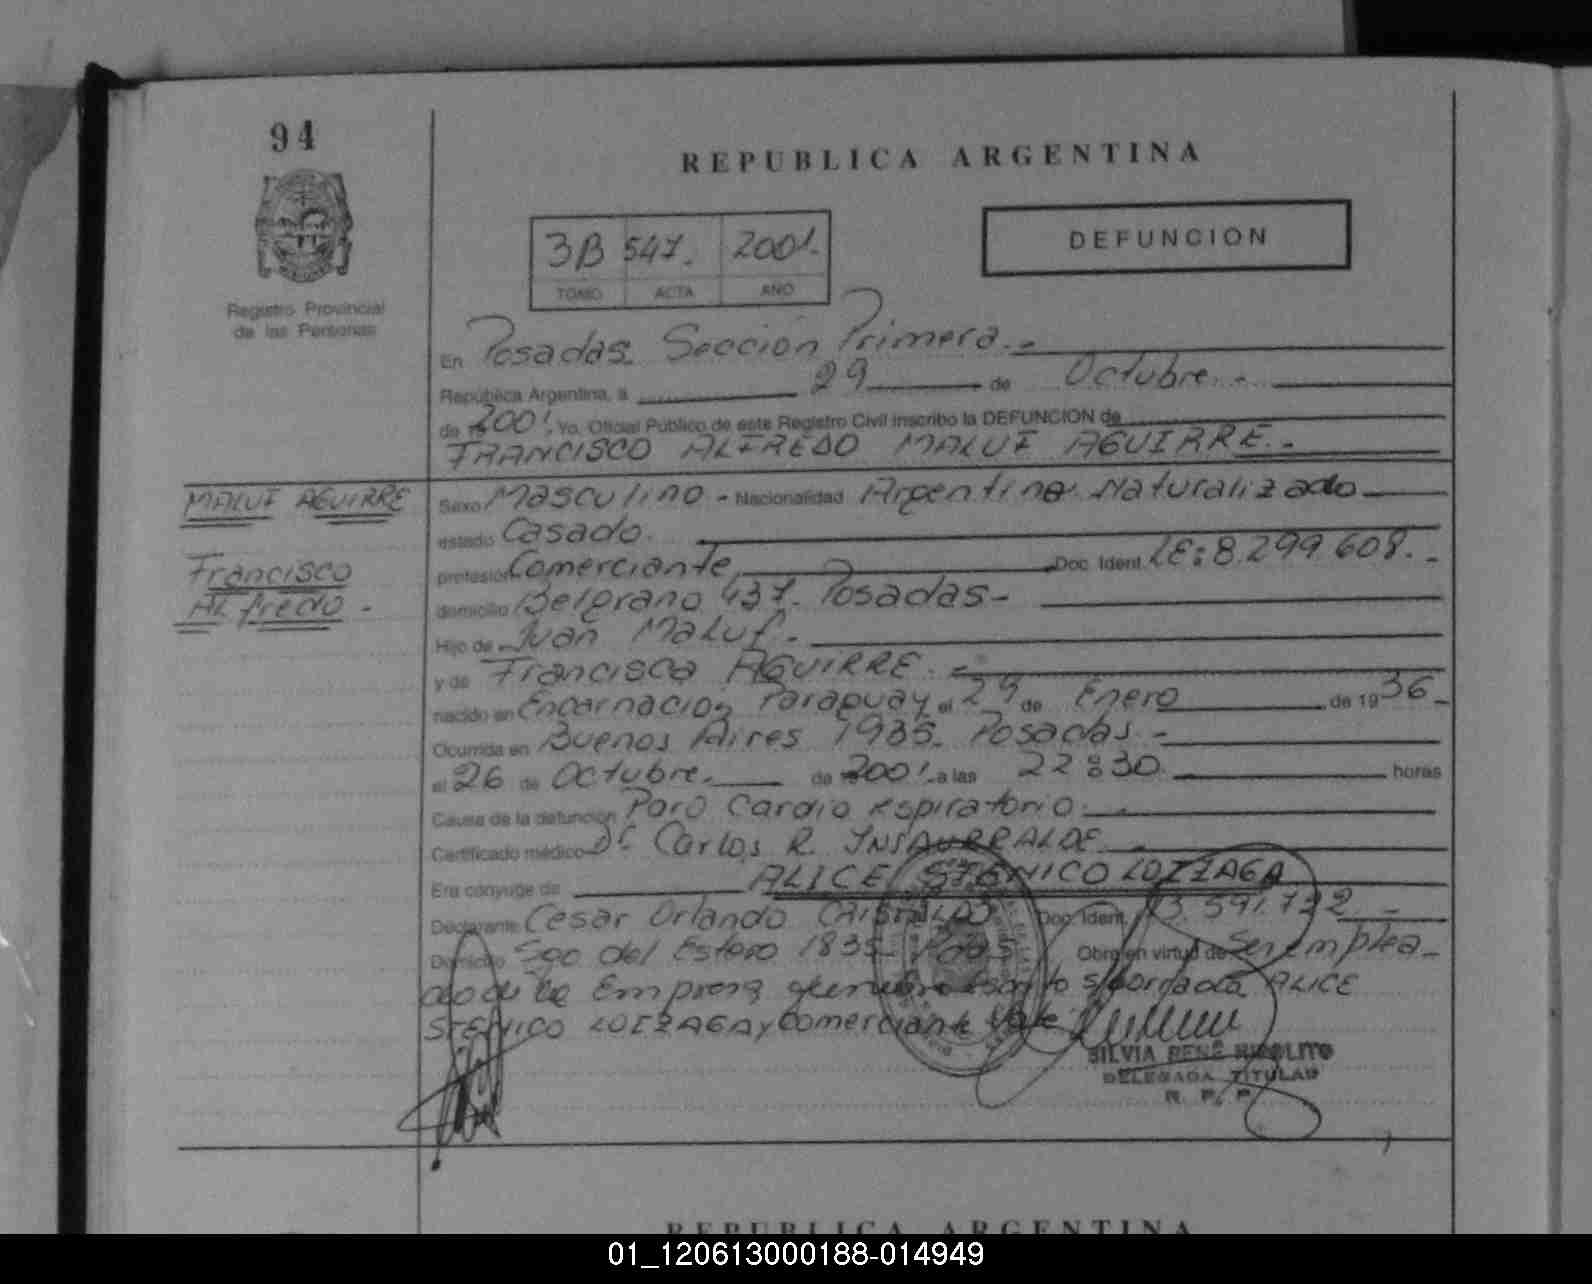 94
REPUBLICA ARGENTINA
3B 547. 2001.
TOMO ACTA AÑO
DEFUNCION
Registro Provincial
de las Personas
En Posadas. Sección Primera.-
República Argentina, a 29 de Octubre.-
de 2001, Yo, Oficial Público de este Registro Civil inscribo la DEFUNCION de
FRANCISCO ALFREDO MALUF AGUIRRE.-
MALUF AGUIRRE
Francisco
ALfredo -
Sexo Masculino - Nacionalidad Argentino Naturalizado
estado Casado.
profesión Comerciante Doc. Ident. LE: 8.299.608.-
domicilio Belgrano 437. Posadas-
Hijo de Juan MaLuf.-
y de Francisca AGUIRRE.-
nacido en Encarnación Paraguay el 29 de Enero de 1936-
Ocurrida en Buenos Aires 1935. Posadas.-
el 26 de Octubre. de 2001. a las 22:30. horas
Causa de la defunción Paro Cardio Respiratorio.-
Certificado médico Dr. Carlos R. INSAURRALDE.-
Era cónyuge de ALICE LOIZAGA
Declarante Cesar Orlando Doc. Ident. 13.591.722 -
Domicilio Sgo del Estero 1835- Pdas. Obra en virtud de Ser emplea-
do de la Empresa ALICE
LOIZAGA y Comerciante Vale
SILVIA RENE HIPOLITO
DELEGADA TITULAR
R. P. P.
REPUBLICA ARGENTINA
01_120613000188-014949